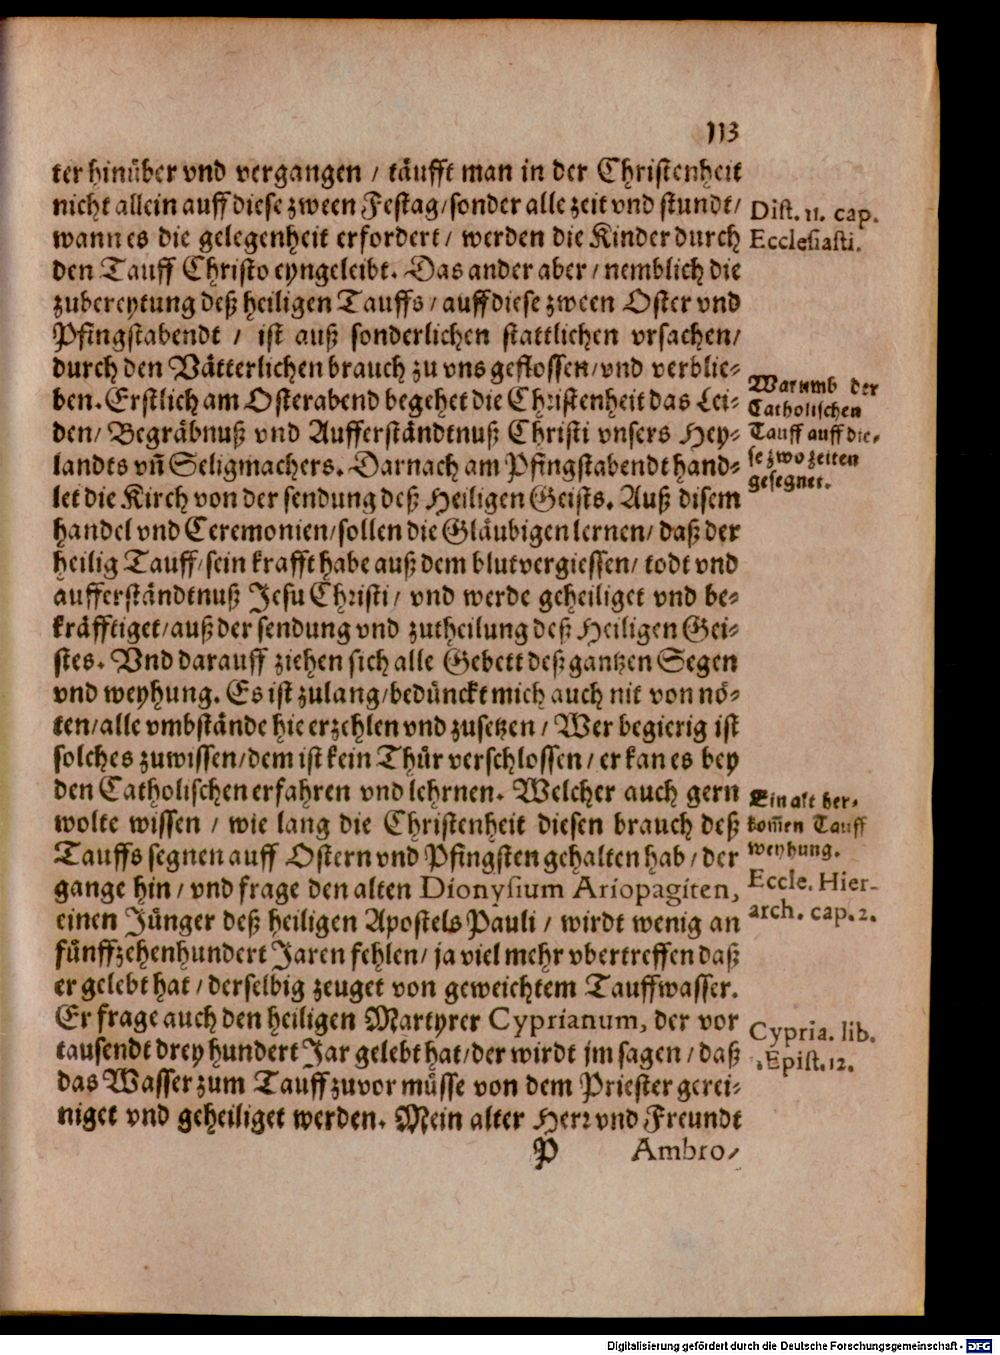 113
ter hinüber vnd vergangen / täufft man in der Christenheit
nicht allein auff diese zween Festag / sonder alle zeit vnd stundt /
wann es die gelegenheit erfordert / werden die Kinder durch
den Tauff Christo eyngeleibt. Das ander aber / nemblich die
zubereytung deß heiligen Tauffs / auff diese zween Oster vnd
Pfingstabendt / ist auß sonderlichen stattlichen vrsachen /
durch den Vätterlichen brauch zu vns geflossen / vnd verblie-
ben. Erstlich am Osterabend begehet die Christenheit das Lei-
den / Begräbnuß vnd Aufferständtnuß Christi vnsers Hey-
landts vñ Seligmachers. Darnach am Pfingstabendt hand-
let die Kirch von der sendung deß Heiligen Geists. Auß disem
handel vnd Ceremonien / sollen die Gläubigen lernen / daß der
heilig Tauff / sein krafft habe auß dem blutvergiessen / todt vnd
aufferständtnuß Jesu Christi / vnd werde geheiliget vnd be-
kräfftiget / auß der sendung vnd zutheilung deß Heiligen Gei-
stes. Vnd darauff ziehen sich alle Gebett deß gantzen Segen
vnd weyhung. Es ist zulang / bedünckt mich auch nit von nö-
ten / alle vmbstände hie erzehlen vnd zusetzen / Wer begierig ist
solches zuwissen / dem ist kein Thür verschlossen / er kan es bey
den Catholischen erfahren vnd lehrnen. Welcher auch gern
wolte wissen / wie lang die Christenheit diesen brauch deß
Tauffs segnen auff Ostern vnd Pfingsten gehalten hab / der
gange hin / vnd frage den alten Dionysium Ariopagiten,
einen Jünger deß heiligen Apostels Pauli / wirdt wenig an
fünffzehenhundert Jaren fehlen / ja viel mehr vbertreffen daß
er gelebt hat / derselbig zeuget von geweichtem Tauffwasser.
Er frage auch den heiligen Martyrer Cyprianum, der vor
tausendt drey hundert Jar gelebt hat / der wirdt jm sagen / daß
das Wasser zum Tauff zuvor müsse von dem Priester gerei-
niget vnd geheiliget werden. Mein alter Herr vnd Freundt
P Ambro-
Dist. 11. cap.
Ecclesiasti.
Warumb der
Catholischen
Tauff auff die-
se zwo zeiten
gesegnet.
Ein alt her-
kom̃en Tauff
weyhung.
Eccle. Hier-
arch. cap. 2.
Cypria. lib.
Epist. 12.
Digitalisierung gefördert durch die Deutsche Forschungsgemeinschaft - DFG